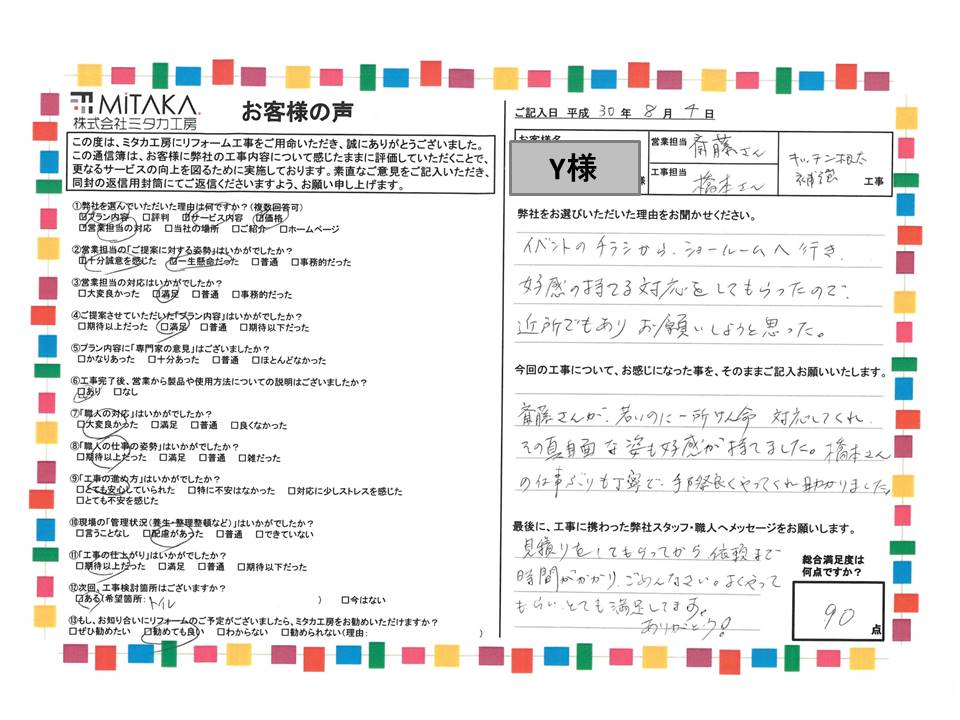 MiTAKA
株式会社ミタカ工房
お客様の声
この度は、ミタカ工房にリフォーム工事をご用命いただき、誠にありがとうございました。
この通信簿は、お客様に弊社の工事内容について感じたままに評価していただくことで、
更なるサービスの向上を図るために実施しております。素直なご意見をご記入いただき、
同封の返信用封筒にてご返信くださいますよう、お願い申し上げます。
①弊社を選んでいただいた理由は何ですか?(複数回答可)
☑プラン内容 □評判 ☑サービス内容 ☑価格
☑営業担当の対応 □当社の場所 □ご紹介 □ホームページ
②営業担当の「ご提案に対する姿勢」はいかがでしたか?
☑十分誠意を感じた ☑一生懸命だった □普通 □事務的だった
③営業担当の対応はいかがでしたか?
□大変良かった ☑満足 □普通 □事務的だった
④ご提案させていただいた「プラン内容」はいかがでしたか?
□期待以上だった ☑満足 □普通 □期待以下だった
⑤プラン内容に「専門家の意見」はございましたか?
□かなりあった □十分あった □普通 □ほとんどなかった
⑥工事完了後、営業から製品や使用方法についての説明はございましたか?
☑あり □なし
⑦「職人の対応」はいかがでしたか?
☑大変良かった □満足 □普通 □良くなかった
⑧「職人の仕事の姿勢」はいかがでしたか?
☑期待以上だった □満足 □普通 □雑だった
⑨「工事の進め方」はいかがでしたか?
☑とても安心していられた □特に不安はなかった □対応に少しストレスを感じた
□とても不安を感じた
⑩現場の「管理状況(養生・整理整頓など)」はいかがでしたか?
□言うことなし ☑配慮があった □普通 □できていない
⑪「工事の仕上がり」はいかがでしたか?
☑期待以上だった □満足 □普通 □期待以下だった
⑫次回、工事検討箇所はございますか?
☑ある(希望箇所: トイレ ) □今はない
⑬もし、お知り合いにリフォームのご予定がございましたら、ミタカ工房をお勧めいただけますか?
□ぜひ勧めたい ☑勧めても良い □わからない □勧められない(理由: )
ご記入日 平成 30 年 8 月 4 日
お客様名
Y様
様
営業担当 斎藤さん
工事担当 橋本さん
キッチン根太
補強 工事
弊社をお選びいただいた理由をお聞かせください。
イベントのチラシから、ショールームへ行き、
好感の持てる対応をしてもらったので、
近所でもあり お願いしようと思った。
今回の工事について、お感じになった事を、そのままご記入お願いいたします。
斎藤さんが、若いのに一所けん命 対応してくれ、
その真面目な姿も好感が持てました。橋本さん
の仕事ぶりも丁寧で、手際良くやってくれ助かりました。
最後に、工事に携わった弊社スタッフ・職人へメッセージをお願いします。
見積りをしてもらってから依頼まで
時間がかかり、ごめんなさい。よくやって
もらい、とても満足してます。
ありがとう!
総合満足度は
何点ですか?
90 点